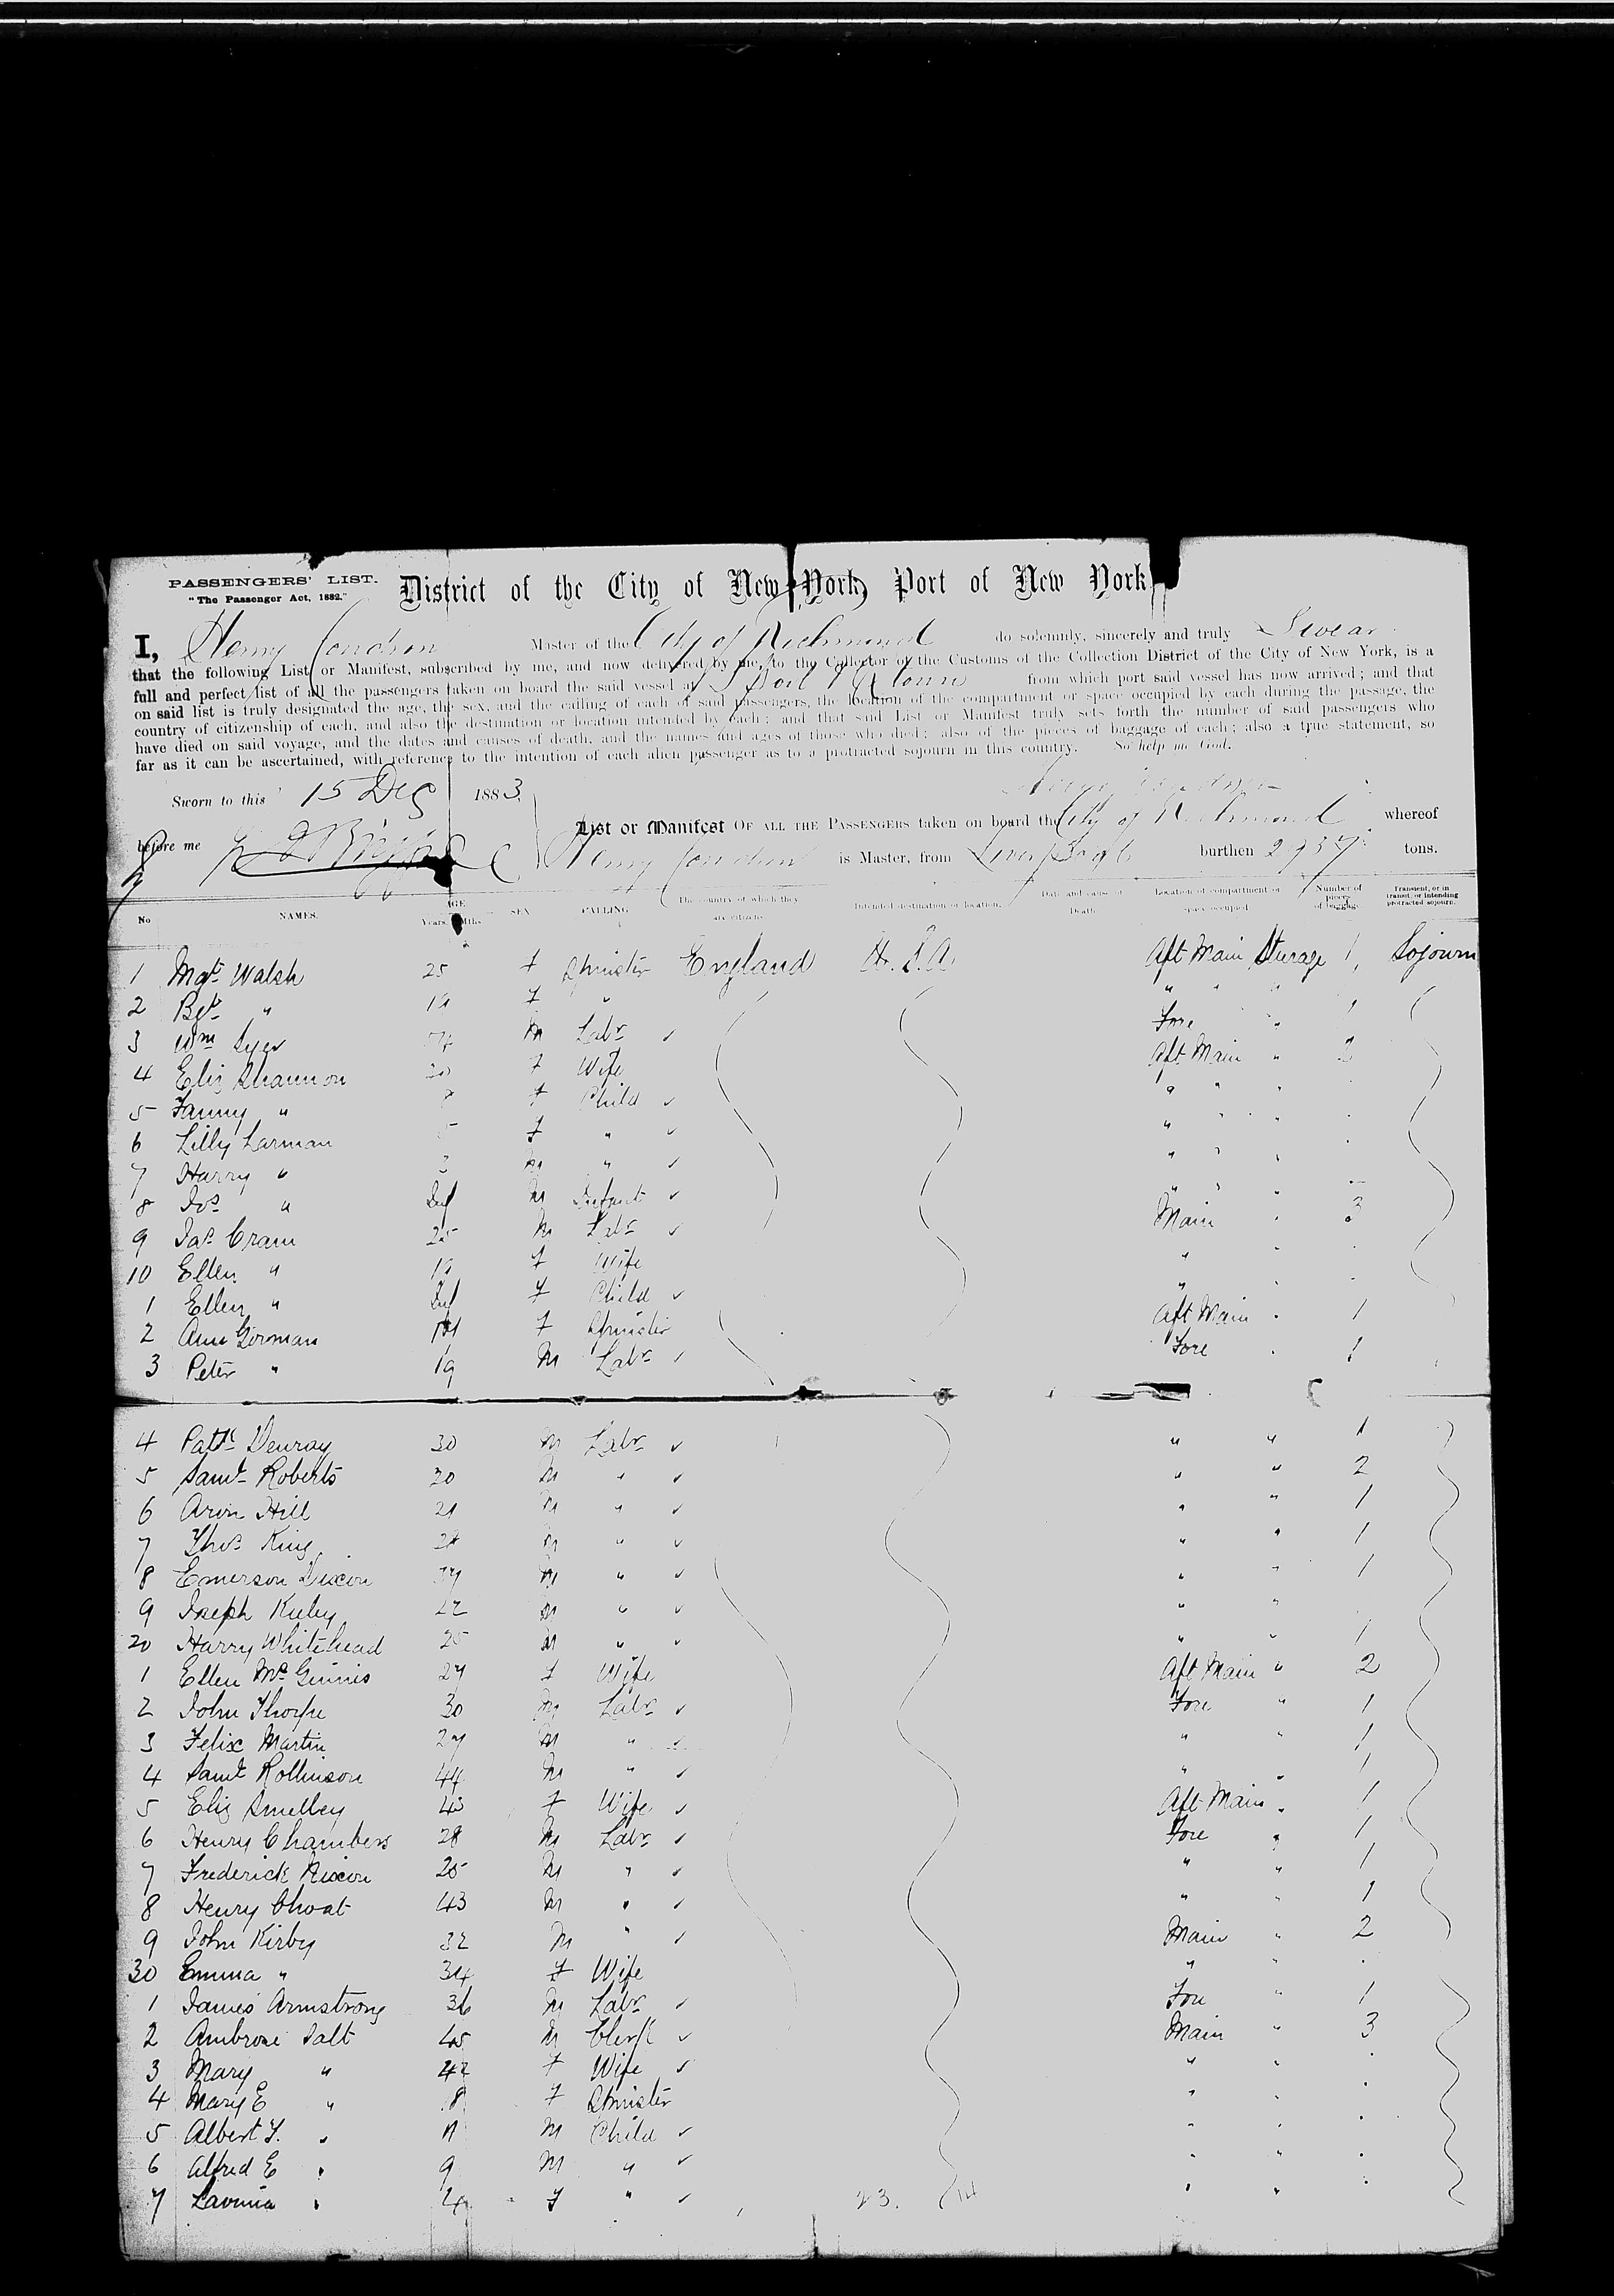 PASSENGERS' LIST.
"The Passenger Act, 1882."
District of the City of New York, Port of New York
I, Henry Condron Master of the City of Richmond do solemnly, sincerely and truly Swear
that the following List or Manifest, subscribed by me, and now delivered by me, to the Collector of the Customs of the Collection District of the City of New York, is a
full and perfect list of all the passengers taken on board the said vessel at L'Pool & Q'town from which port said vessel has now arrived; and that
on said list is truly designated the age, the sex, and the calling of each of said passengers, the location of the compartment or space occupied by each during the passage, the
country of citizenship of each, and also the destination or location intended by each; and that said List or Manifest truly sets forth the number of said passengers who
have died on said voyage, and the dates and causes of death, and the names and ages of those who died; also of the pieces of baggage of each; also a true statement, so
far as it can be ascertained, with reference to the intention of each alien passenger as to a protracted sojourn in this country. So help me God.
Sworn to this 15 Dec 1883
List or Manifest OF ALL THE PASSENGERS taken on board the City of Richmond whereof
before me
Henry Condron is Master, from Liverpool burthen tons.
No NAMES. AGE Years. Mths. SEX CALLING The country of which they are citizens Intended destination or location. Date and cause of Death Location of compartment or space occupied Number of pieces of baggage Transient, or in transit, or intending protracted sojourn.
1 Mgt Walsh 25 F Spinster England U.S.A. Aft Main Sterage 1 Sojourn
2 Bgt " F " " " " 1
3 Wm Syer M Labr Fore "
4 Eliz Shannon F Wife Aft Main " 2
5 Fanny " F Child " " "
6 Lilly Larman 5 F " " " "
7 Harry " 3 M " " " "
8 Jos " Inf M Infant " " "
9 Jas Cram 25 M Labr Main " 3
10 Ellen " 19 F Wife " "
1 Ellen " Inf F Child " "
2 Ann Gorman F Spinster Aft Main " 1
3 Peter " 19 M Labr Fore " 1
4 Patk 30 M Labr " " 1
5 Saml Roberts 30 M " " " 2
6 Aron Hill 21 M " " " 1
7 Thos King M " " " 1
8 Emerson Dixon M " " " 1
9 Joseph 22 M " " "
20 Harry Whitehead 25 M " " " 1
1 Ellen McGinnis 27 F Wife Aft Main " 2
2 John Thorpe 30 M Labr Fore " 1
3 Felix Martin 27 M " " " 1
4 Saml Rollinson 44 M " " " 1
5 Eliz Smelley 43 F Wife Aft Main " 1
6 Henry Chambers 28 M Labr Fore " 1
7 Frederick Nixon 25 M " " " 1
8 Henry Choat 43 M " " " 1
9 John Kirby 32 M " Main " 2
30 Emma " 34 F Wife "
1 James Armstrong 36 M Labr Fore " 1
2 Ambrose Salt 45 M Clerk Main " 3
3 Mary " 42 F Wife " "
4 Mary E " F Spinster " "
5 Albert F. " 11 M Child " "
6 Alfred E " 9 M " " "
7 Lavinia " 4 F " " "
23. 14